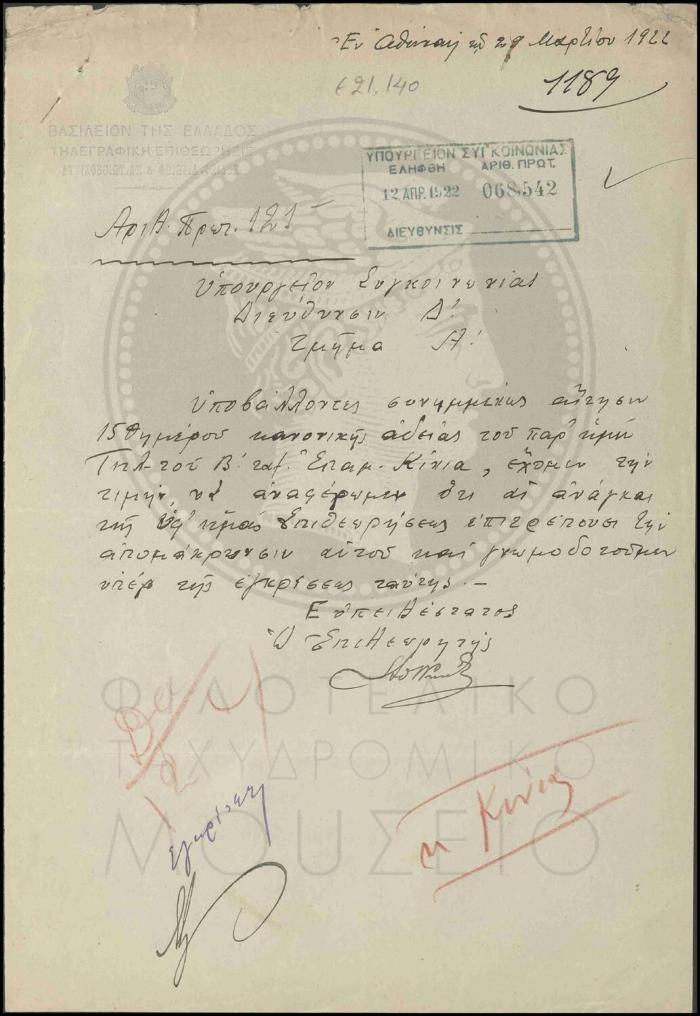 Ἐν Ἀθήναις τῇ 29 Μαρτίου 1922
1189
€21.140
ΒΑΣΙΛΕΙΟΝ ΤΗΣ ΕΛΛΑΔΟΣ
ΤΗΛΕΓΡΑΦΙΚΗ ΕΠΙΘΕΩΡΗΣΙΣ
ΥΠΟΥΡΓΕΙΟΝ ΣΥΓΚΟΙΝΩΝΙΑΣ
ΕΛΗΦΘΗ ΑΡΙΘ. ΠΡΩΤ.
12 ΑΠΡ. 1922 068,542
ΔΙΕΥΘΥΝΣΙΣ
Ἀριθ. Πρωτ. 121
Ὑπουργεῖον Συγκοινωνίας
Διεύθυνσιν Δ'.
Τμῆμα Α'.
Ὑποβάλλοντες συνημμένως αἴτησιν
15θημέρου κανονικῆς ἀδείας τοῦ παρ' ἡμῖν
Τηλ-τοῦ Β' ταξ. Ἐπαμ. Κίνια, ἔχομεν τὴν
τιμὴν νὰ ἀναφέρωμεν ὅτι αἱ ἀνάγκαι
τῆς ὑφ' ἡμᾶς Ἐπιθεωρήσεως ἐπιτρέπουσι τὴν
ἀπομάκρυνσιν αὐτοῦ καὶ γνωμοδοτοῦμεν
ὑπὲρ τῆς ἐγκρίσεως ταύτης. —
Εὐπειθέστατος
Ὁ Ἐπιθεωρητής
ΦΙΛΟΤΕΛΙΚΟ
ΤΑΧΥΔΡΟΜΙΚΟ
ΜΟΥΣΕΙΟ
Κίνιας